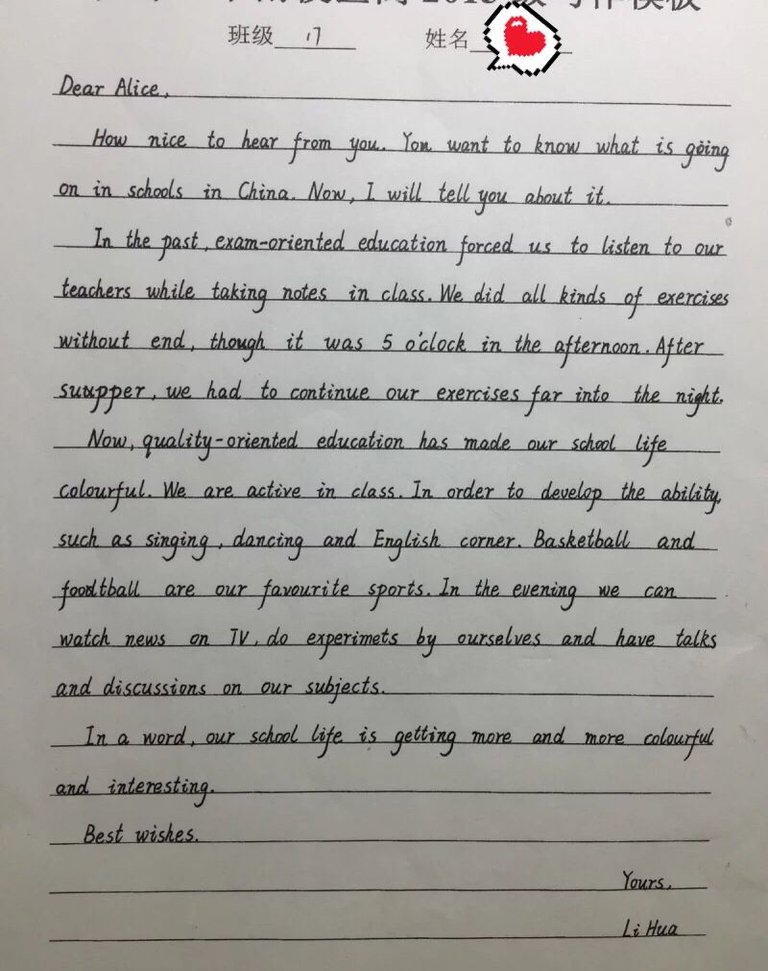 班级 17 姓名
Dear Alice,
How nice to hear from you. You want to know what is going
on in schools in China. Now, I will tell you about it.
In the past, exam-oriented education forced us to listen to our
teachers while taking notes in class. We did all kinds of exercises
without end, though it was 5 o'clock in the afternoon. After
supper, we had to continue our exercises far into the night.
Now, quality-oriented education has made our school life
colourful. We are active in class. In order to develop the ability,
such as singing, dancing and English corner. Basketball and
football are our favourite sports. In the evening we can
watch news on TV, do experimets by ourselves and have talks
and discussions on our subjects.
In a word, our school life is getting more and more colourful
and interesting.
Best wishes.
Yours,
Li Hua